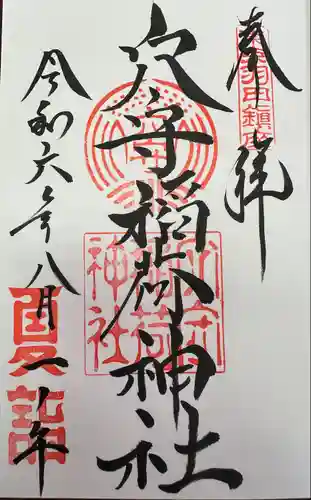 奉拝
東京羽田鎮座
穴守稲荷神社
穴守稲荷神社
令和六年八月一八年
夏詣